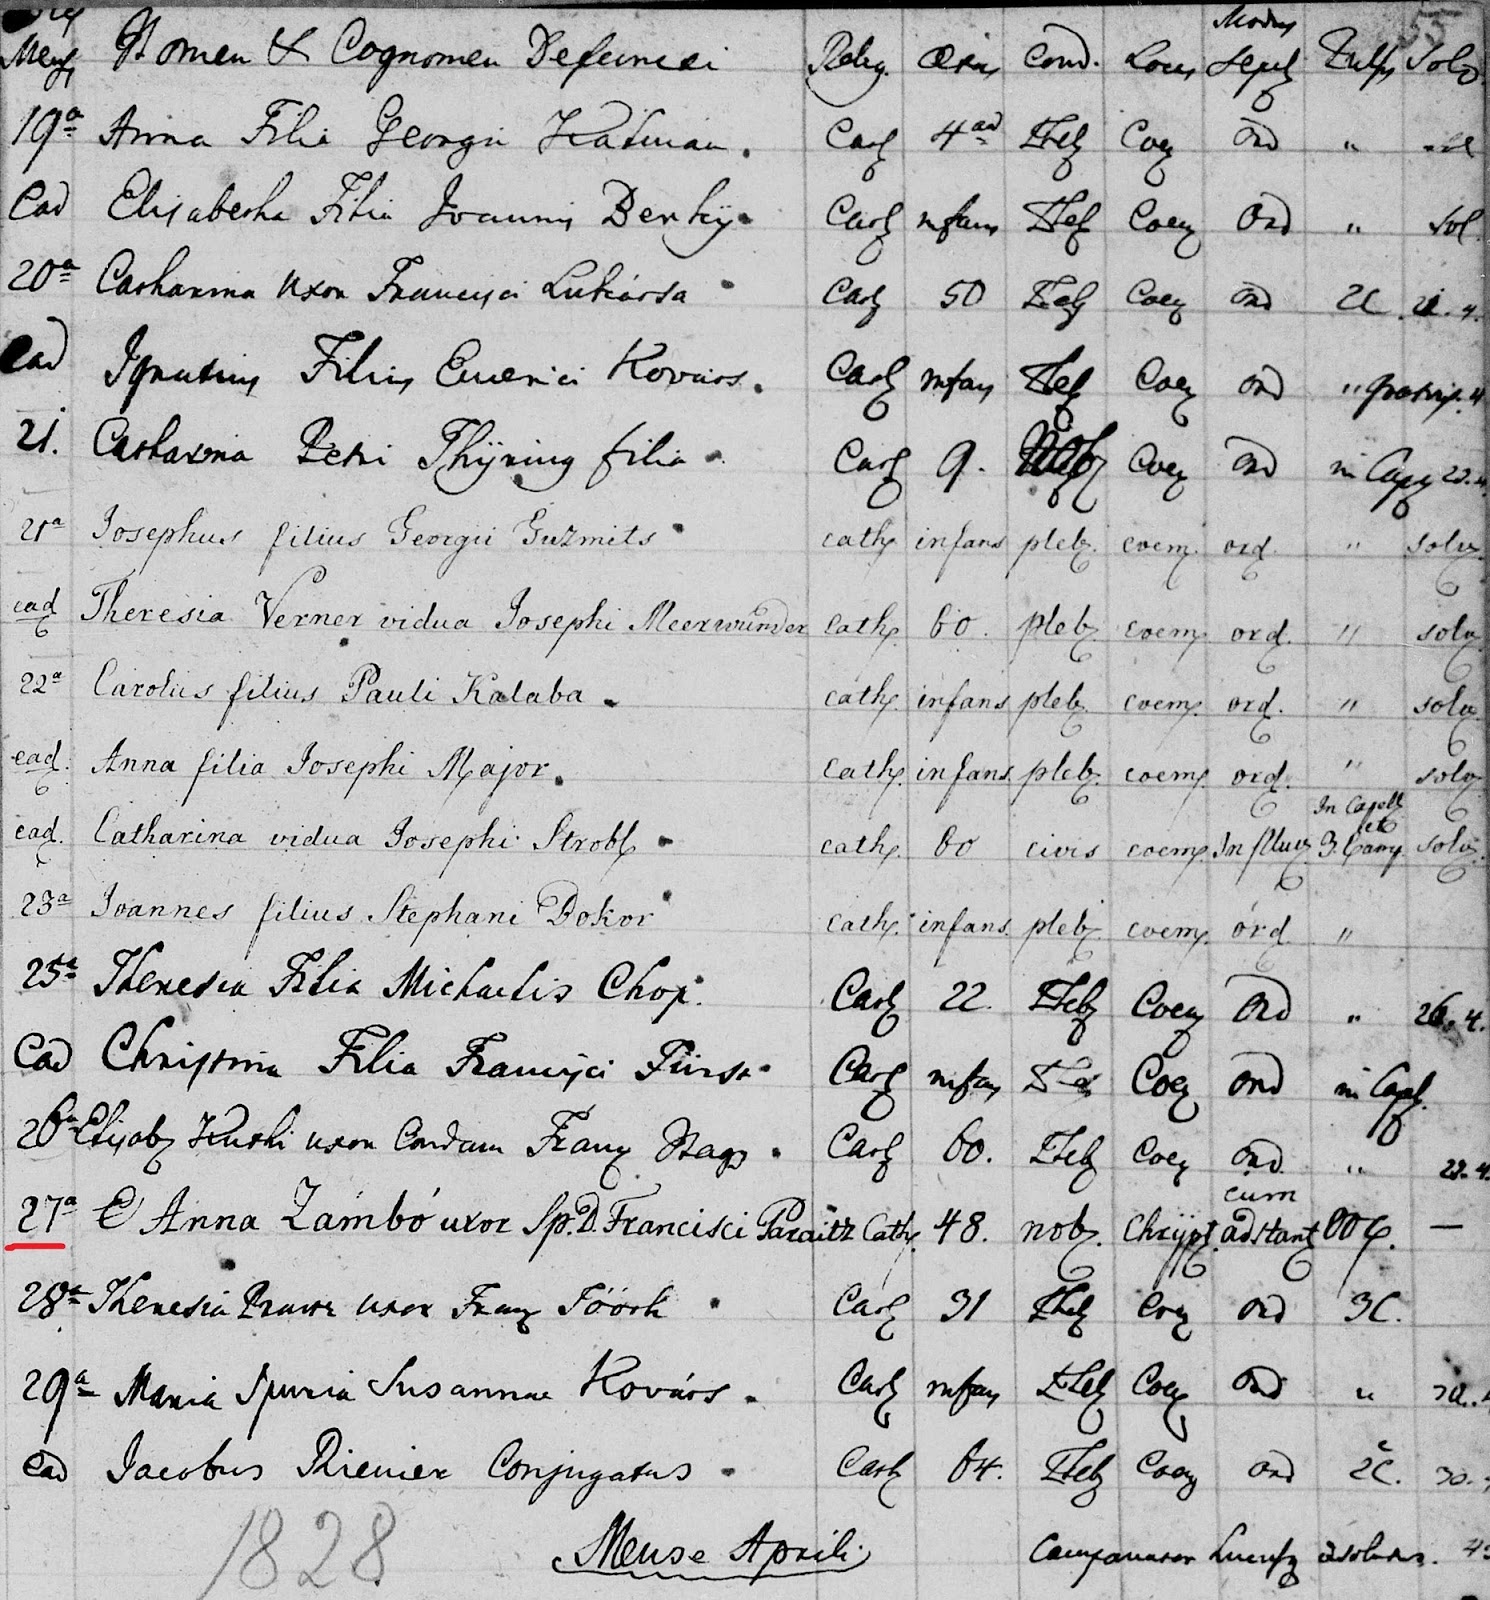 Mens Nomen & Cognomen Defuncti Relig. Ætas Cond. Locus Modus Sepul Pulsus Solo
19ª Anna Filia Georgii Kátmán. Cath 4 Pleb Coem ord "
Ead Elisabetha Filia Joannis Benkÿ. Cath infans Pleb Coem Ord " sol.
20ª Catharina uxor Francisci Lukátsa Cath 50 Pleb Coem ord 2C 21. 4.
Ead Ignatius Filius Emerici Kováts. Cath infans Pleb Coem ord " gratis. 4
21. Catharina Petri Thÿring filia. Cath 9. Pleb Coem ord in Cap 22. 4.
21ª Josephus filius Georgii Guzmits cath infans pleb. coem. ord. " solv.
ead Theresia Verner vidua Josephi Meerwunder cath. 60. pleb. coem. ord. " solv.
22ª Carolus filius Pauli Kalaba. cath. infans pleb. coem. ord. " solv.
ead. Anna filia Josephi Major. cath. infans. pleb. coem. ord. " solv.
ead. Catharina vidua Josephi Strobl cath. 60 civis coem. In Capell et 3 Camp. solv.
23ª Joannes filius Stephani Bokor cath. infans. pleb. coem. ord. "
25ª Theresia Filia Michaelis Chop. Cath 22. Pleb Coem Ord " 26. 4.
Ead Christina Filia Francisci Fürst Cath infans Pleb Coem ord in Capl.
26ª Elisab uxor Condam Franz Cath 60. Pleb Coem ord " 4.
27ª Anna Zámbó uxor Sp. D. Francisci Paraitz Cath. 48. nob. Chrÿpt. cum adstant —
28ª Theresia uxor Franz Cath 31 Pleb Coem ord 3C.
29ª Maria Spuria Susannae Kováts. Cath infans Pleb Coem ord " 30. 4
Ead Jacobus Rienier Conjugatus Cath 64. Pleb Coem ord 2C. 30.
1828 Mense Aprili